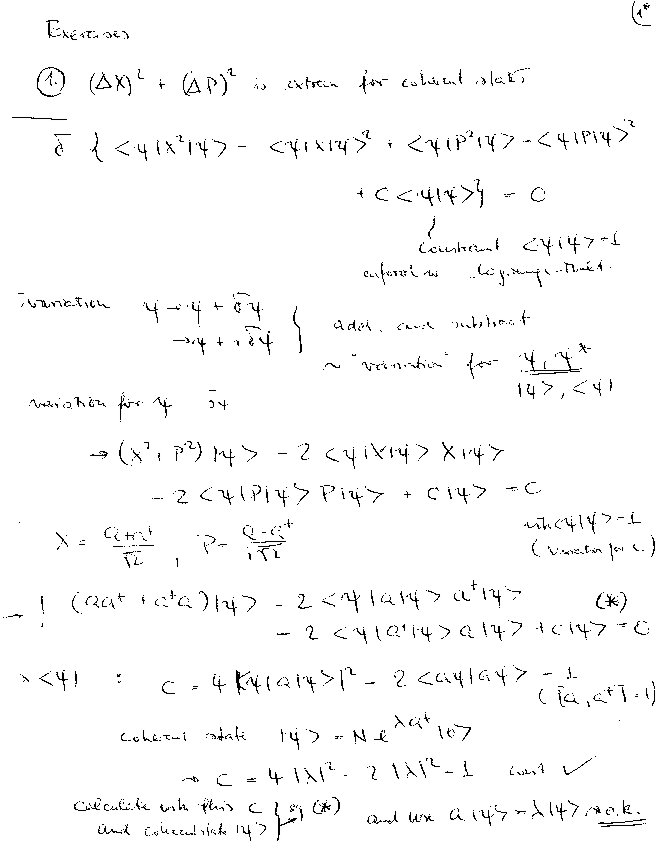 1*
Exercises
① (ΔX)² + (ΔP)² is extrem for coherent states
δ { <ψ|X²|ψ> - <ψ|X|ψ>² + <ψ|P²|ψ> - <ψ|P|ψ>²
+ C <ψ|ψ>} = 0
Constraint <ψ|ψ>=1
variation ψ → ψ + δψ
→ ψ + iδψ
add and subtract
~ "variation" for ψ, ψ*
|ψ>, <ψ|
variation for ψ δψ
→ (X² + P²) |ψ> - 2 <ψ|X|ψ> X|ψ>
- 2 <ψ|P|ψ> P|ψ> + C|ψ> = 0
X = (a+a†)/√2 , P = (a-a†)/i√2
with <ψ|ψ>=1
(variation for C)
→ ! (aa† + a†a)|ψ> - 2 <ψ|a|ψ> a†|ψ> (*)
- 2 <ψ|a†|ψ> a|ψ> + C|ψ> = 0
× <ψ| : C = 4 |<ψ|a|ψ>|² - 2 <aψ|aψ> - 1
([a, a†]=1)
coherent state |ψ> = N e^{λa†} |0>
→ C = 4 |λ|² - 2 |λ|² - 1 const ✓
calculate with this C
and coherent state |ψ> } (*) and use a|ψ> = λ|ψ> o.k.